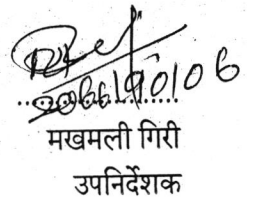 2066/10/06
मखमली गिरी
उपनिर्देशक